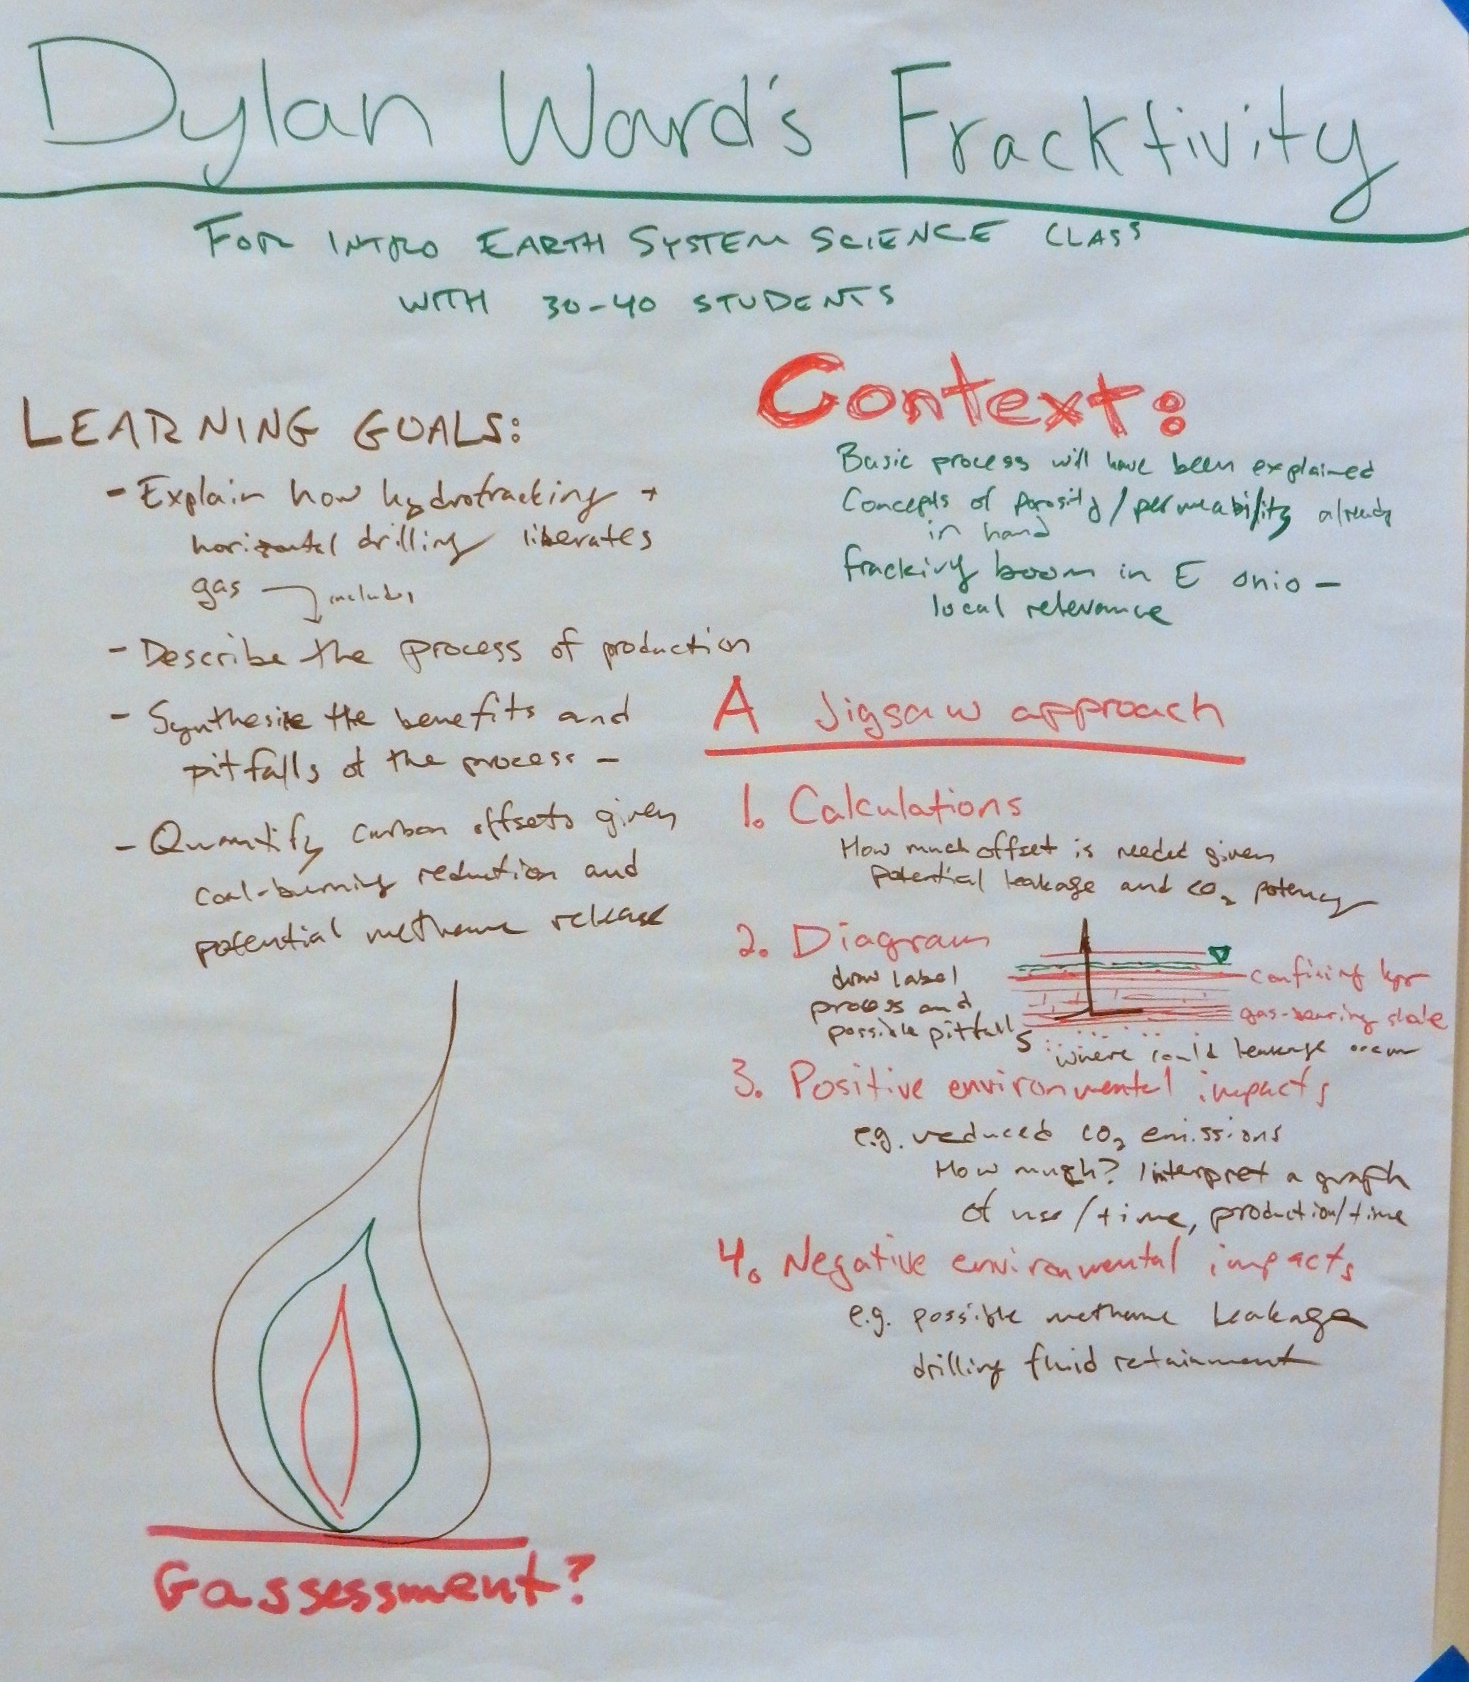 Dylan Ward's Fracktivity
FOR INTRO EARTH SYSTEM SCIENCE CLASS
WITH 30-40 STUDENTS
LEARNING GOALS:
- Explain how hydrofracking +
horizontal drilling liberates
gas includes
- Describe the process of production
- Synthesize the benefits and
pitfalls of the process -
- Quantify carbon offsets given
coal-burning reduction and
potential methane release
Gassessment?
Context:
Basic process will have been explained
Concepts of porosity/permeability already
in hand
fracking boom in E Ohio -
local relevance
A Jigsaw approach
1. Calculations
How much offset is needed given
potential leakage and CO₂ potency
2. Diagram
draw label
process and
possible pitfalls
confining layer
gas-bearing shale
where could leakage occur
3. Positive environmental impacts
e.g. reduced CO₂ emissions
How much? Interpret a graph
of use/time, production/time
4. Negative environmental impacts
e.g. possible methane leakage
drilling fluid retainment